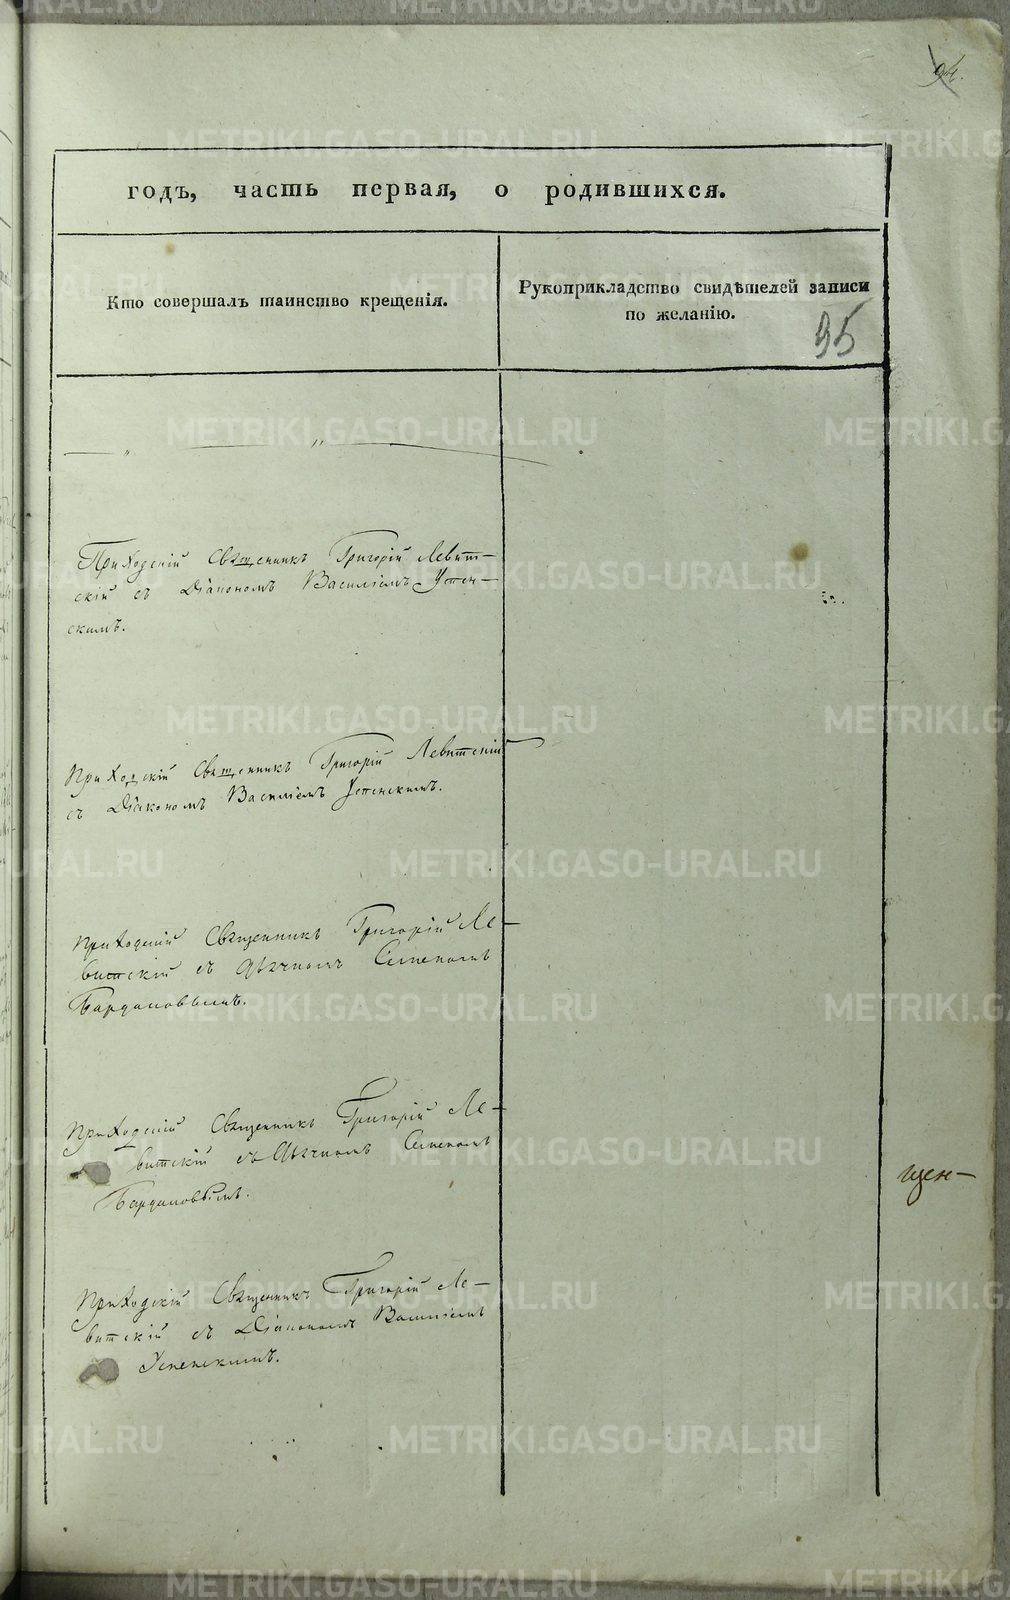 METRIKI.GASO-URAL.RU
94.
годъ, часть первая, о родившихся.
Кто совершалъ таинство крещенія.
Рукоприкладство свидѣтелей записи
по желанію.
95
Приходскій Священникъ Григорій Левит-
скій съ Діакономъ Василіемъ Успен-
скимъ.
Приходскій Священникъ Григорій Левитскій
съ Діакономъ Василіемъ Успенскимъ.
Приходскій Священникъ Григорій Ле-
витскій съ Дьячкомъ Семеномъ
Приходскій Священникъ Григорій Ле-
витскій съ Дьячкомъ Семеномъ
щен-
Приходскій Священникъ Григорій Ле-
витскій съ Діакономъ Василіемъ
Успенскимъ.